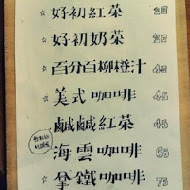 ☆ 好初紅菜 20
☆ 好初奶菜 30
☆ 百分百柳橙汁 45
☆ 美式咖啡 45
鹹鹹紅菜 45
海雲咖啡 65
☆ 拿鐵咖啡 75